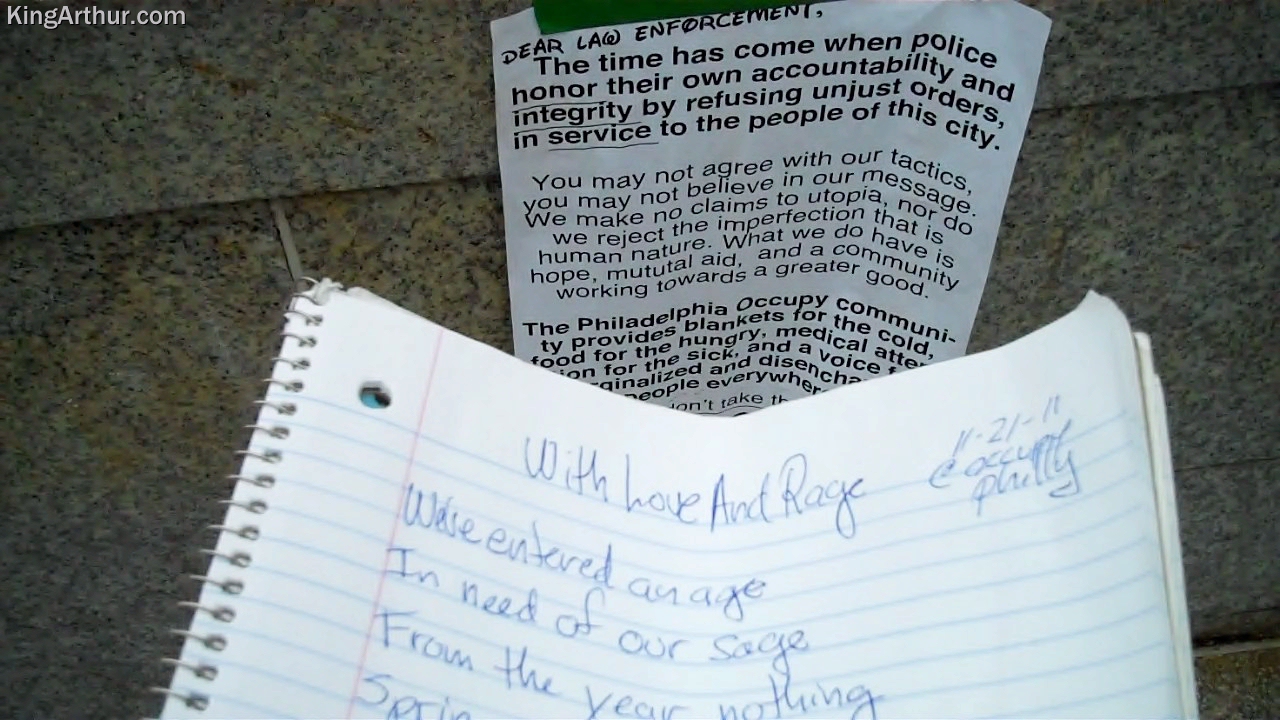 KingArthur.com
DEAR LAW ENFORCEMENT,
The time has come when police
honor their own accountability and
integrity by refusing unjust orders,
in service to the people of this city.
You may not agree with our tactics,
you may not believe in our message.
We make no claims to utopia, nor do
we reject the imperfection that is
human nature. What we do have is
hope, mututal aid, and a community
working towards a greater good.
The Philadelphia Occupy communi-
ty provides blankets for the cold,
food for the hungry, medical atten
ion for the sick, and a voice f
ginalized and disencha
people everywher
on't take th
With Love And Rage
11-21-11
@ occupy
philly
We've entered an age
In need of our sage
From the year nothing
Sprin